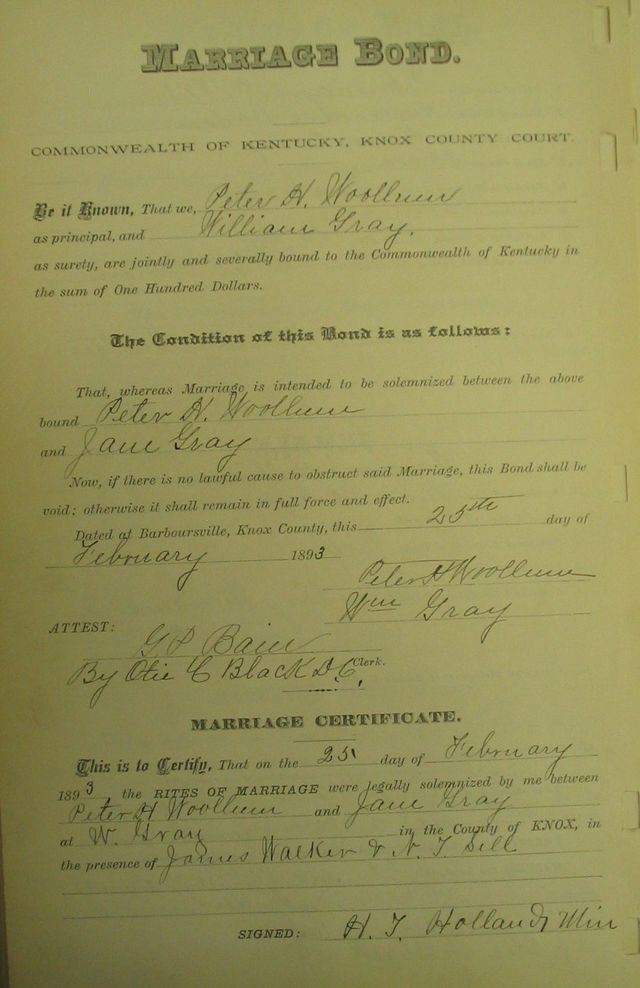 MARRIAGE BOND.
COMMONWEALTH OF KENTUCKY, KNOX COUNTY COURT.
Be it Known, That we, Peter H. Woollum
as principal, and William Gray,
as surety, are jointly and severally bound to the Commonwealth of Kentucky in
the sum of One Hundred Dollars.
The Condition of this Bond is as follows:
That, whereas Marriage is intended to be solemnized between the above
bound Peter H. Woollum
and Jane Gray
Now, if there is no lawful cause to obstruct said Marriage, this Bond shall be
void; otherwise it shall remain in full force and effect.
Dated at Barboursville, Knox County, this 25th day of
February 1893
Peter H Woollum
Wm Gray
ATTEST:
G P Bain
By Otie C Black D.C, Clerk.
MARRIAGE CERTIFICATE.
This is to Certify, That on the 25 day of February
1893 the RITES OF MARRIAGE were legally solemnized by me between
Peter H Woollum and Jane Gray
at W. Gray in the County of KNOX, in
the presence of James Walker & N. T. Sell
SIGNED: H. T. Holland Min